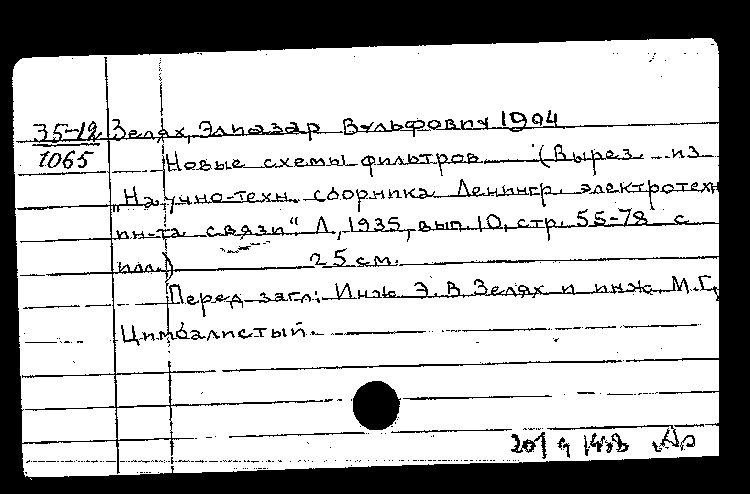 35-12 Зелях, Элиазар Вульфович 1904
1065 Новые схемы фильтров (Вырез. из
„Научно-техн. сборника Ленингр. электротехн
ин-та связи“ Л., 1935, вып. 10, стр. 55-78 с
илл.) 25 см.
Перед загл: Инж Э. В. Зелях и инж. М. Г.
Цимбалистый.